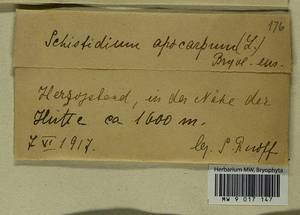 176
Schistidium apocarpum (L.)
Bryol. eur.
Herzogstand, in der Nähe der
Hütte ca 1600 m.
7 VI 1917. leg. S.
Herbarium MW, Bryophyta
MW 9 017 147